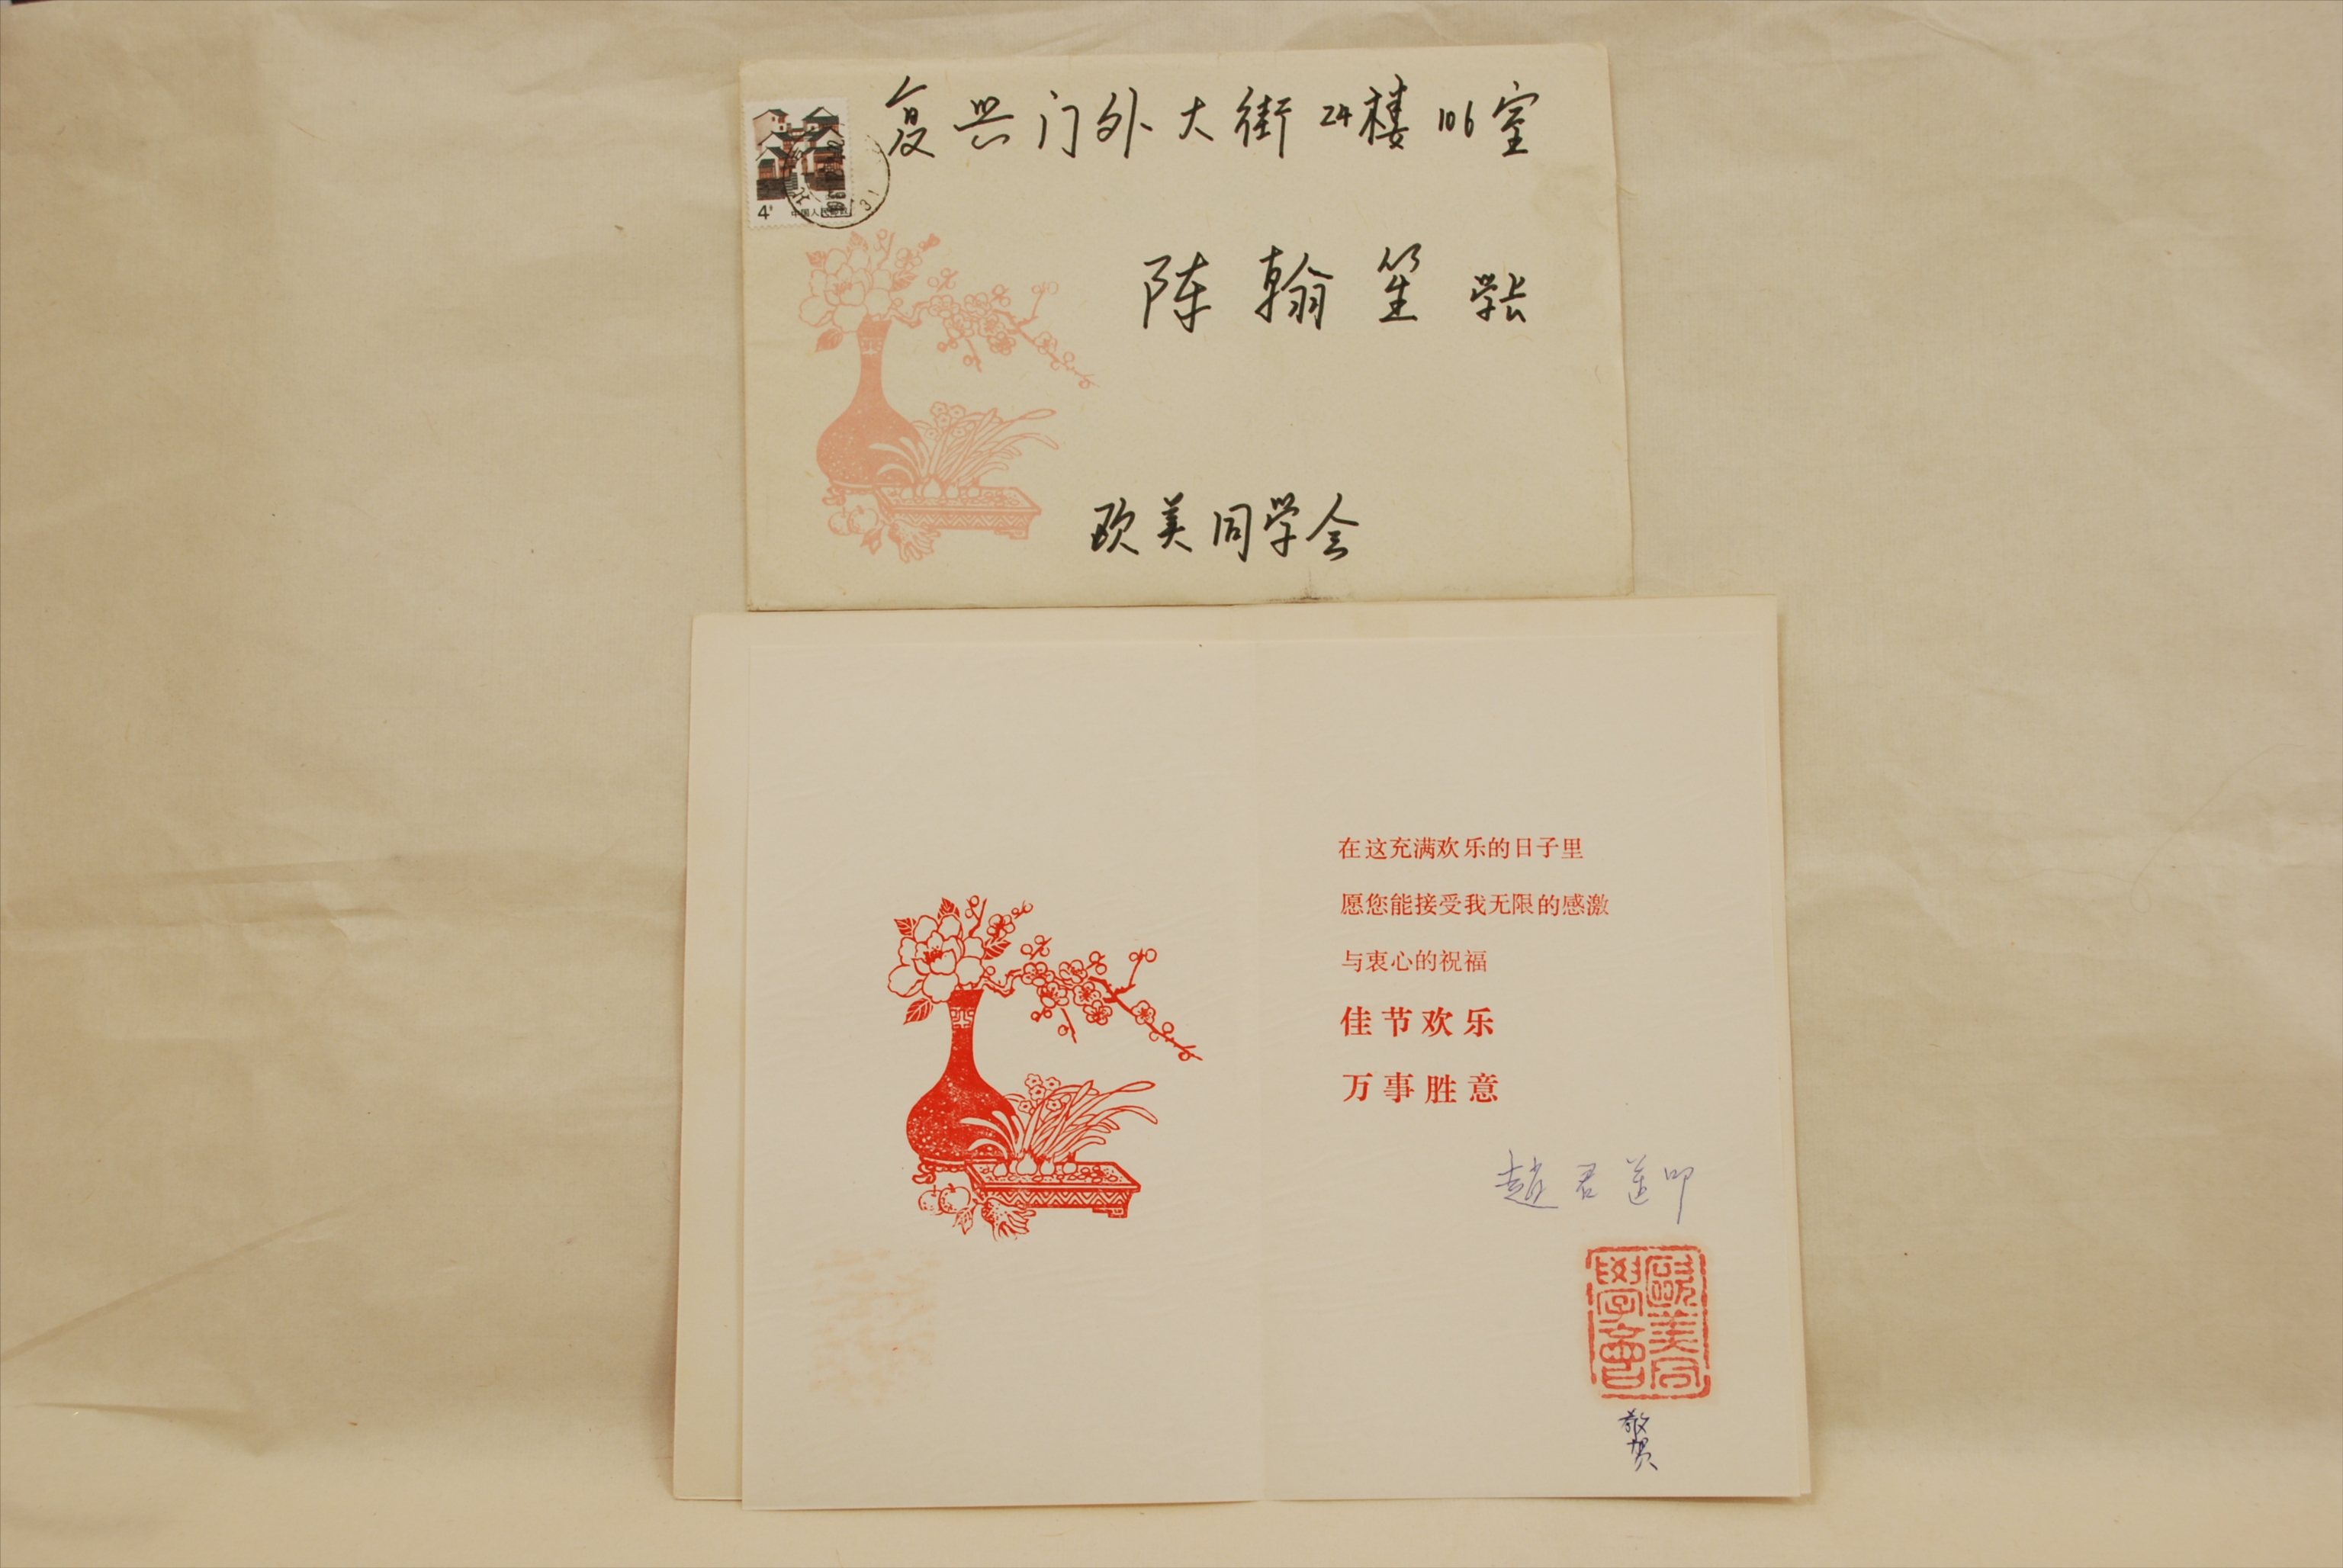 复兴门外大街24楼106室
4分
中国人民邮政
陈翰笙 学长
欧美同学会
在这充满欢乐的日子里
愿您能接受我无限的感激
与衷心的祝福
佳节欢乐
万事胜意
趙君邁叩
歐美同學會
敬贺